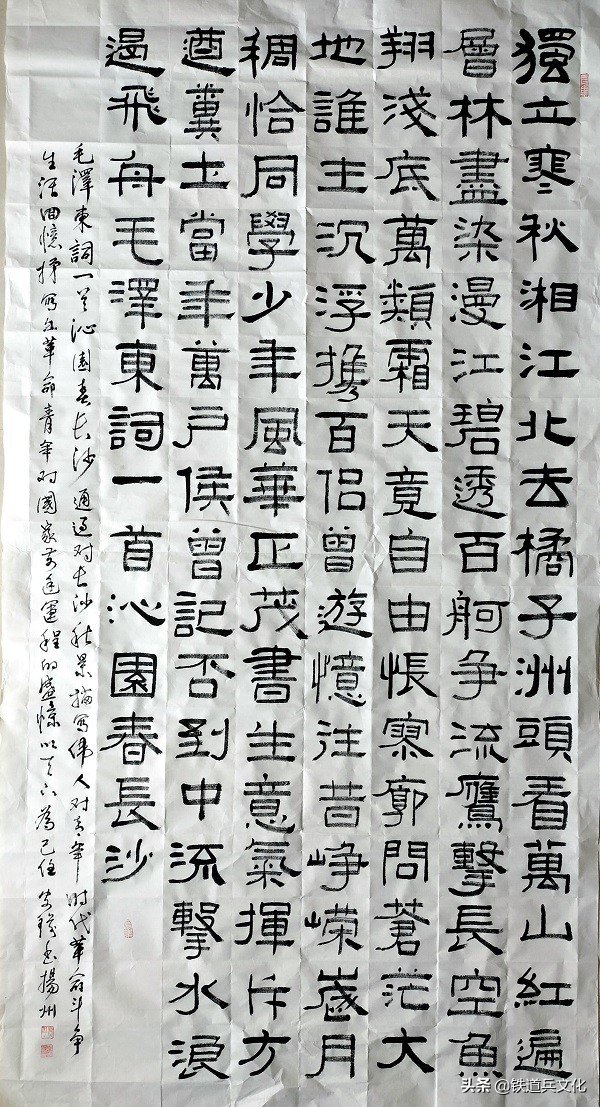 獨立寒秋湘江北去橘子洲頭看萬山紅遍
層林盡染漫江碧透百舸争流鷹擊長空魚
翔淺底萬類霜天竟自由悵寥廓問蒼茫大
地誰主沉浮攜百侣曾遊憶往昔崢嶸歲月
稠恰同學少年風華正茂書生意氣揮斥方
遒糞土當年萬户侯曾記否到中流擊水浪
遏飛舟毛澤東詞一首沁園春長沙
毛澤東詞一首沁園春长沙通过对长沙秋景描写伟人对青年时代革命斗争
生活回憶抒写出革命青年对國家前途運程的感慨以天下為己任 书揚州
头条 @铁道兵文化